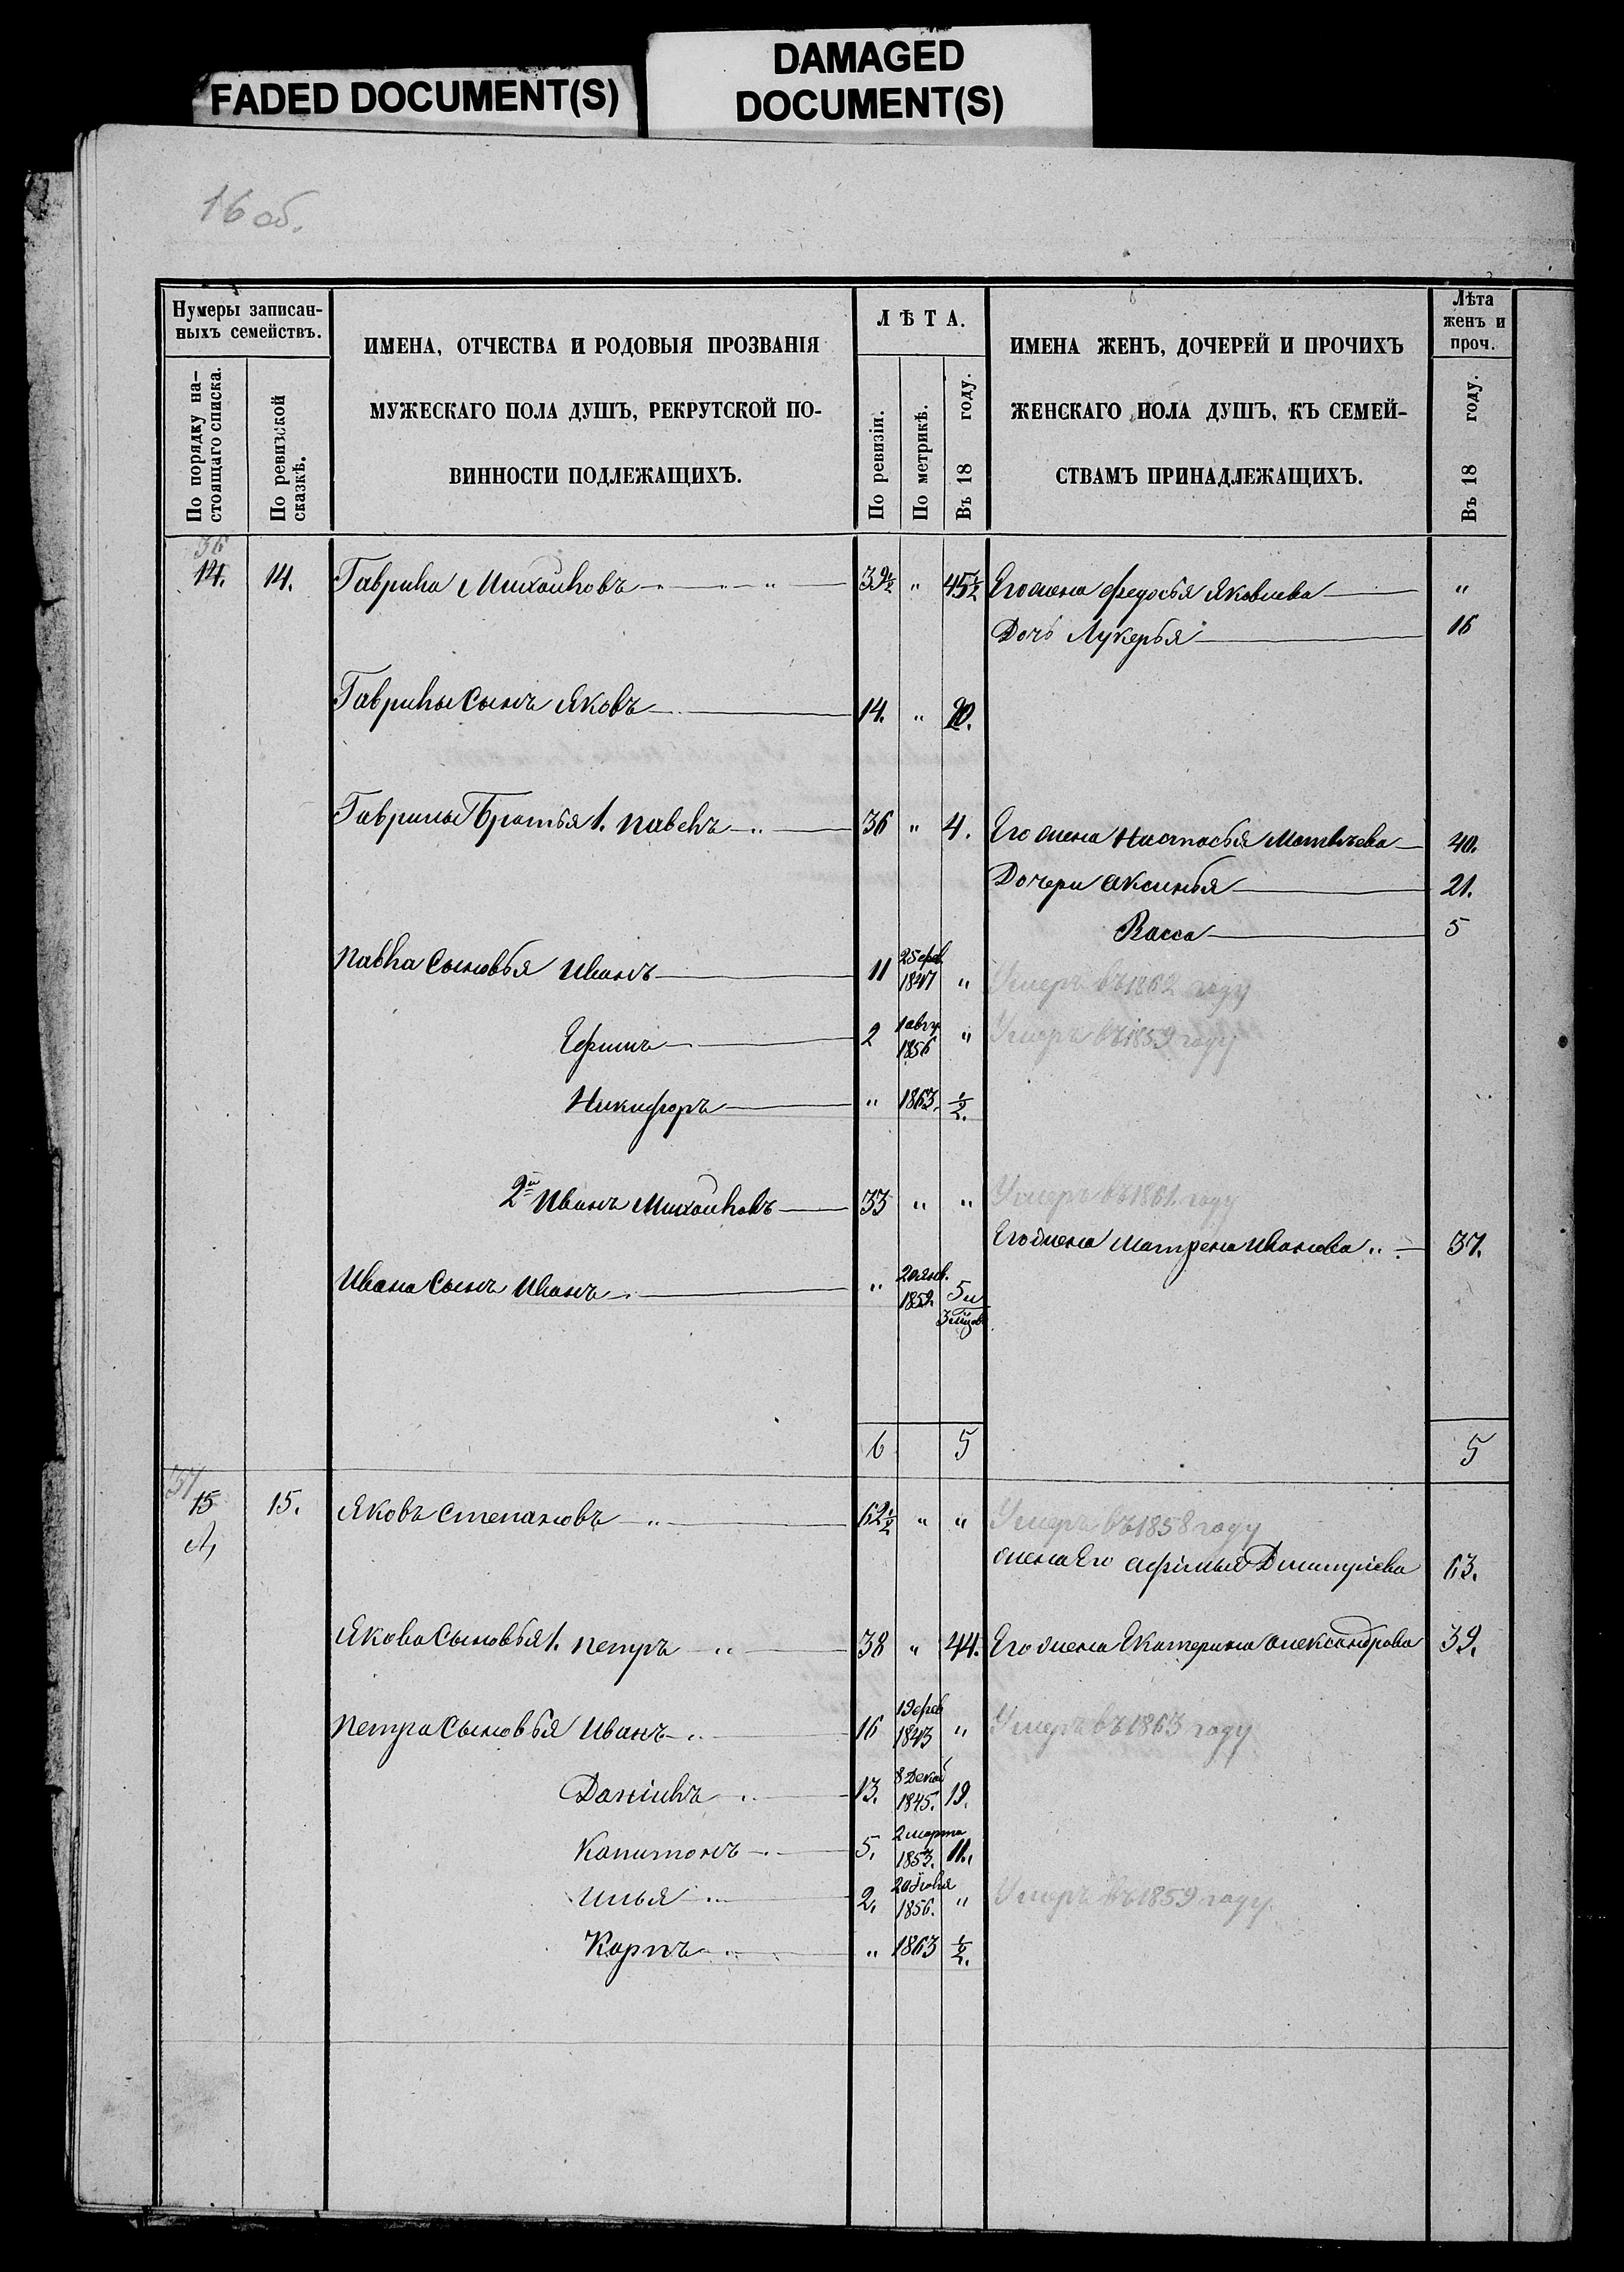 FADED DOCUMENT(S)
DAMAGED
DOCUMENT(S)
16 об.
Нумеры записан-
ныхъ семействъ.
По порядку на-
стоящаго списка.
По ревизской
сказкѣ.
ИМЕНА, ОТЧЕСТВА И РОДОВЫЯ ПРОЗВАНІЯ
МУЖЕСКАГО ПОЛА ДУШЪ, РЕКРУТСКОЙ ПО-
ВИННОСТИ ПОДЛЕЖАЩИХЪ.
ЛѢТА.
По ревизіи.
По метрикѣ.
Въ 18 году.
ИМЕНА ЖЕНЪ, ДОЧЕРЕЙ И ПРОЧИХЪ
ЖЕНСКАГО ПОЛА ДУШЪ, КЪ СЕМЕЙ-
СТВАМЪ ПРИНАДЛЕЖАЩИХЪ.
Лѣта
женъ и
проч.
Въ 18 году.
36
14. 14. Гаврила Михайловъ 39½ " 45½ Его жена Федосья Яковлева "
Дочь Лукерья 16
Гаврилы Сынъ Яковъ 14. " 20.
Гаврилы Братья 1. Павелъ 36 " 4. Его жена Настасья Матвѣева 40.
Дочери Аксинья 21.
Васса 5
Павла Сыновья Иванъ 11 25 фев. 1847 " Умеръ въ 1862 году
Ефимъ 2 1 авгу 1856 " Умеръ въ 1859 году
Никифоръ " 1863. ½.
2й Иванъ Михайловъ 33 " " Умеръ въ 1861 году
Его жена Матрена Иванова 37.
Ивана Сынъ Иванъ " 20 янв. 1859. 5 и
6 5 5
37
15 15. Яковъ Степановъ 62½ " " Умеръ въ 1858 году
жена Его Афимья Дмитріева 63.
Якова Сыновья 1. Петръ 38 " 44. Его жена Екатерина Александрова 39.
Петра Сыновья Иванъ 16 19 фев 1843 " Умеръ въ 1863 году
Даніилъ 13. 8 Декаб 1845. 19.
Капитонъ 5. 2 марта 1853. 11.
Илья 2. 1856. " Умеръ въ 1859 году.
Карпъ " 1863 ½.